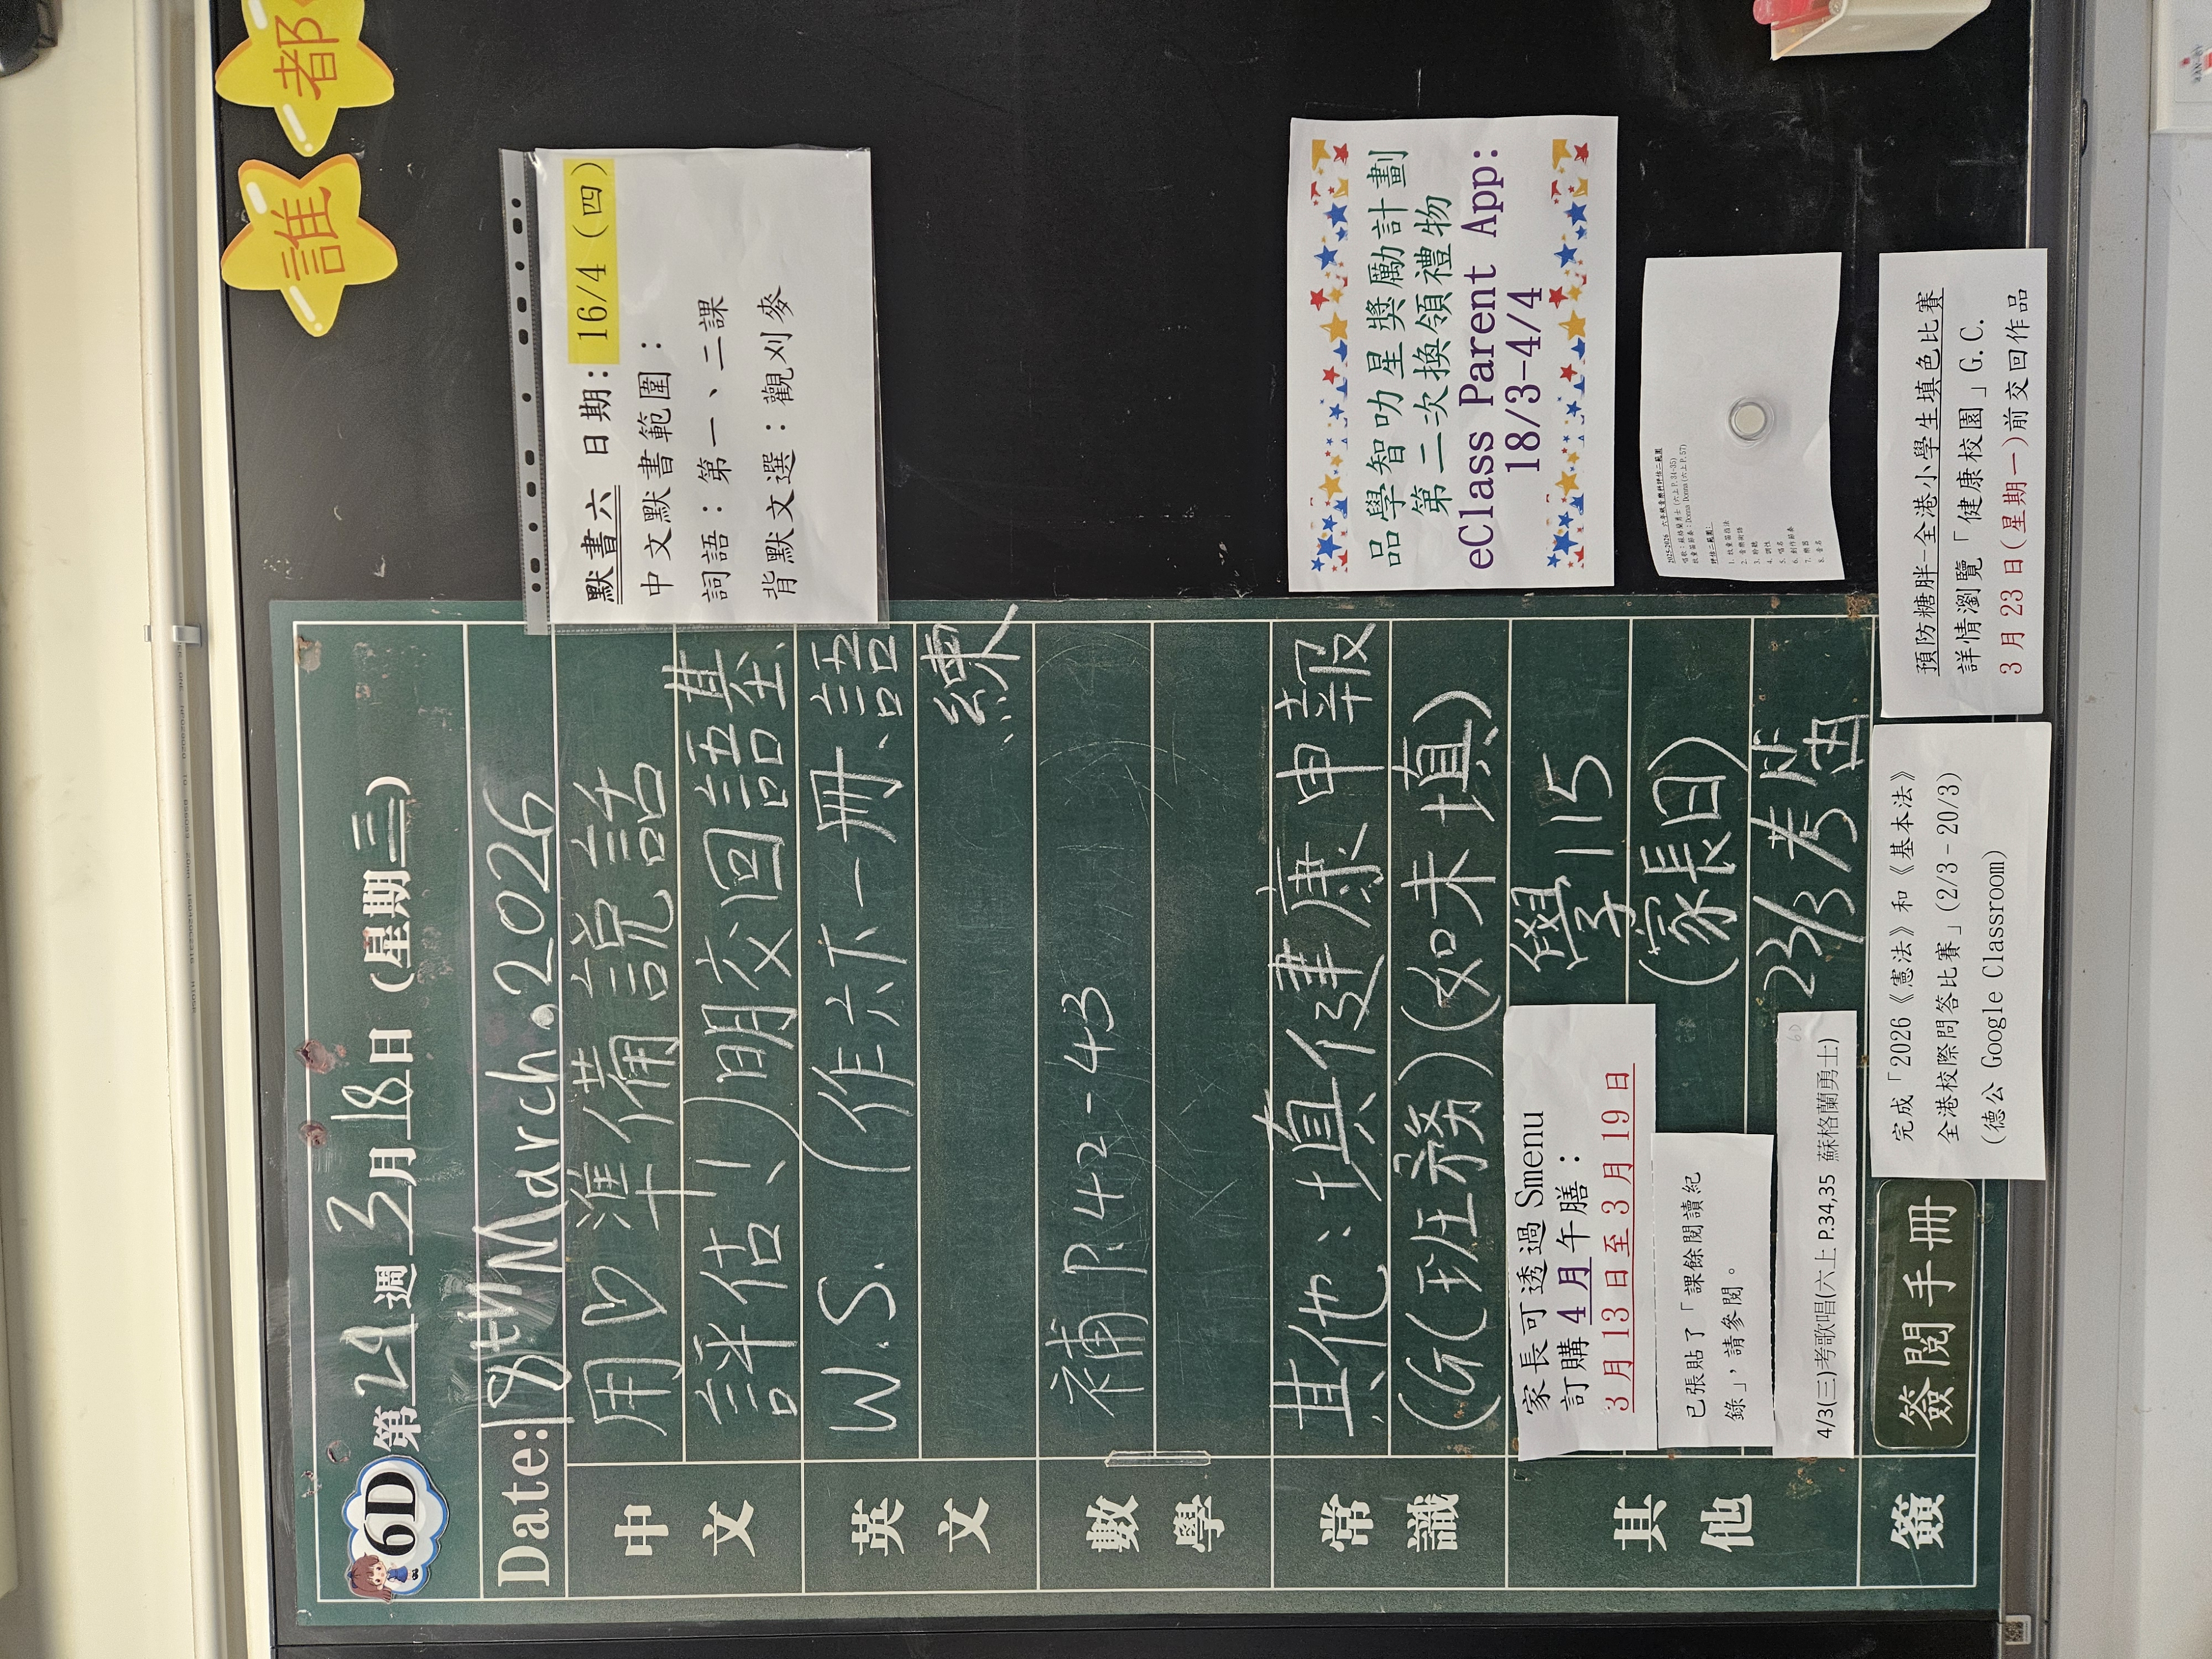 誰都
6D 第29週 3月18日（星期三）
Date: 18th March.2026
中文
用♡準備說話
評估！）明交回語基、
英文
W.S. （作六下一冊、語
練
數學
補P.42-43
常識
其他：填健康申報
(G(班務)(如未填)
其他
家長可透過 Smenu
訂購 4 月午膳：
3 月 13 日至 3 月 19 日
學115
(家長回)
已張貼了「課餘閱讀紀
錄」，請參閱。
4/3(三)考歌唱(六上 P.34,35 蘇格蘭勇士)
6D
23/3考
簽
簽閱手冊
完成「2026《憲法》和《基本法》
全港校際問答比賽」(2/3－20/3)
(德公 Google Classroom)
預防糖胖—全港小學生填色比賽
詳情瀏覽「健康校園」G.C.
3 月 23 日(星期一)前交回作品
默書六 日期：16/4（四）
中文默書範圍：
詞語：第一、二課
背默文選：觀刈麥
品學智叻星獎勵計劃
第二次換領禮物
eClass Parent App:
18/3-4/4
2025-2026 六年級音樂科評估二範圍